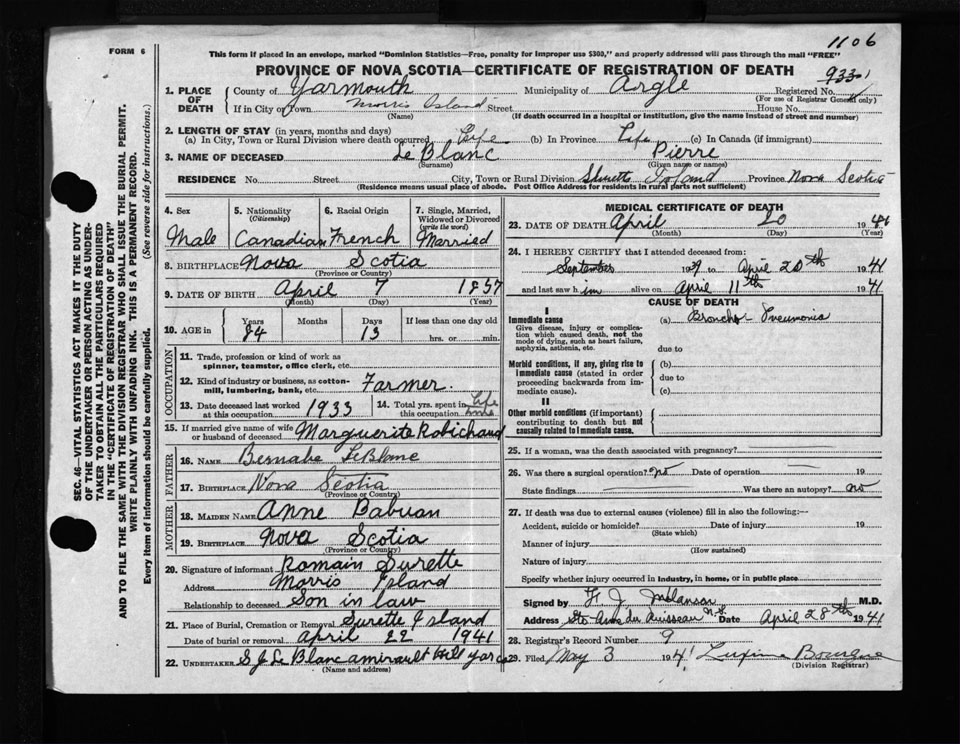 1106
FORM 6
This form if placed in an envelope, marked "Dominion Statistics—Free, penalty for improper use $300," and properly addressed will pass through the mail "FREE"
PROVINCE OF NOVA SCOTIA—CERTIFICATE OF REGISTRATION OF DEATH
933
1. PLACE OF DEATH
County of Yarmouth Municipality of Argle Registered No.
(For use of Registrar General only)
If in City or Town Morris Island Street House No.
(Name) (If death occurred in a hospital or institution, give the name instead of street and number)
2. LENGTH OF STAY (in years, months and days)
(a) In City, Town or Rural Division where death occurred Life (b) In Province Life (c) In Canada (if immigrant)
3. NAME OF DECEASED Le Blanc Pierre
(Surname) (Given name or names)
RESIDENCE No. Street City, Town or Rural Division Island Province Nova Scotia
(Residence means usual place of abode. Post Office Address for residents in rural parts not sufficient)
4. Sex
Male
5. Nationality
(Citizenship)
Canadian
6. Racial Origin
French
7. Single, Married, Widowed or Divorced
(write the word)
Married
8. BIRTHPLACE Nova Scotia
(Province or Country)
9. DATE OF BIRTH April 7 1857
(Month) (Day) (Year)
10. AGE in Years Months Days If less than one day old
84 13 hrs. or min.
OCCUPATION
11. Trade, profession or kind of work as
spinner, teamster, office clerk, etc.
12. Kind of industry or business, as cotton-
mill, lumbering, bank, etc. Farmer.
13. Date deceased last worked
at this occupation 1933
14. Total yrs. spent in
this occupation Life
15. If married give name of wife
or husband of deceased Marguerite Robichaud
FATHER
16. NAME Bernabe LeBlanc
17. BIRTHPLACE Nova Scotia
(Province or Country)
MOTHER
18. MAIDEN NAME Anne Babuan
19. BIRTHPLACE Nova Scotia
(Province or Country)
20. Signature of informant Romain Surette
Address Morris Island
Relationship to deceased Son in law
21. Place of Burial, Cremation or Removal Surette Island
Date of burial or removal April 22 1941
22. UNDERTAKER S J Le Blanc amirault Hill Yar co
(Name and address)
MEDICAL CERTIFICATE OF DEATH
23. DATE OF DEATH April 20 1941
(Month) (Day) (Year)
24. I HEREBY CERTIFY that I attended deceased from:
September 19 to April 20th 1941
and last saw him alive on April 11th 1941
CAUSE OF DEATH
I
Immediate cause (a) Broncho-Pneumonia
Give disease, injury or complica-
tion which caused death, not the
mode of dying, such as heart failure,
asphyxia, asthenia, etc.
due to
Morbid conditions, if any, giving rise to
Immediate cause (stated in order
proceeding backwards from im-
mediate cause).
(b)
due to
(c)
II
Other morbid conditions (if important)
contributing to death but not
causally related to Immediate cause.
25. If a woman, was the death associated with pregnancy?
26. Was there a surgical operation? no Date of operation 19
State findings Was there an autopsy? no
27. If death was due to external causes (violence) fill in also the following:—
Accident, suicide or homicide? Date of injury 19
(State which)
Manner of injury
(How sustained)
Nature of injury
Specify whether injury occurred in industry, in home, or in public place
Signed by J Melanson M.D.
Address Ste Anne du Ruisseau N.S. Date April 28th 1941
28. Registrar's Record Number 9
29. Filed May 3 1941
(Division Registrar)
SEC. 46—VITAL STATISTICS ACT MAKES IT THE DUTY
OF THE UNDERTAKER OR PERSON ACTING AS UNDER-
TAKER TO OBTAIN ALL THE PARTICULARS REQUIRED
IN THE "CERTIFICATE OF REGISTRATION OF DEATH"
AND TO FILE THE SAME WITH THE DIVISION REGISTRAR WHO SHALL ISSUE THE BURIAL PERMIT.
WRITE PLAINLY WITH UNFADING INK. THIS IS A PERMANENT RECORD.
Every item of information should be carefully supplied. (See reverse side for instructions.)